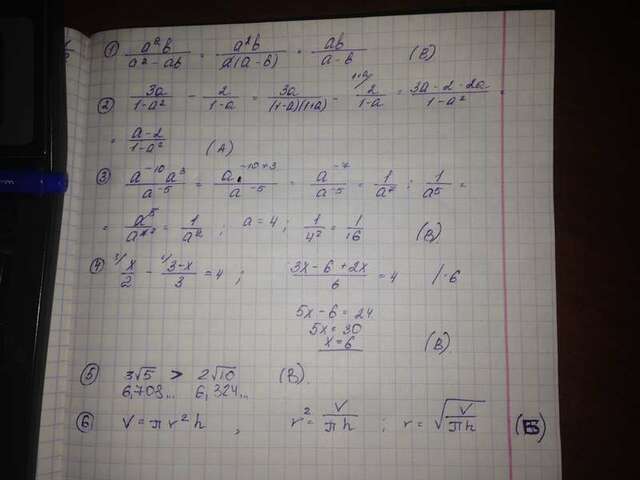 ① a²b / a² - ab = a²b / a(a - b) = ab / a - b (В)
② 3a / 1 - a² - 2 / 1 - a = 3a / (1-a)(1+a) - 2 / 1 - a ^1+a = 3a - 2 - 2a / 1 - a² =
= a - 2 / 1 - a² (А)
③ a⁻¹⁰ a³ / a⁻⁵ = a⁻¹⁰⁺³ / a⁻⁵ = a⁻⁷ / a⁻⁵ = 1 / a⁷ : 1 / a⁵ =
= a⁵ / a⁷ = 1 / a² ; a = 4 ; 1 / 4² = 1 / 16 (В)
④ x / 2 - 3-x / 3 = 4 ; 3x - 6 + 2x / 6 = 4 / · 6
5x - 6 = 24
5x = 30
x = 6 (В)
⑤ 3√5 > 2√10
6,708... 6,324... (В).
⑥ V = π r² h , r² = V / πh ; r = √V / πh (Б)